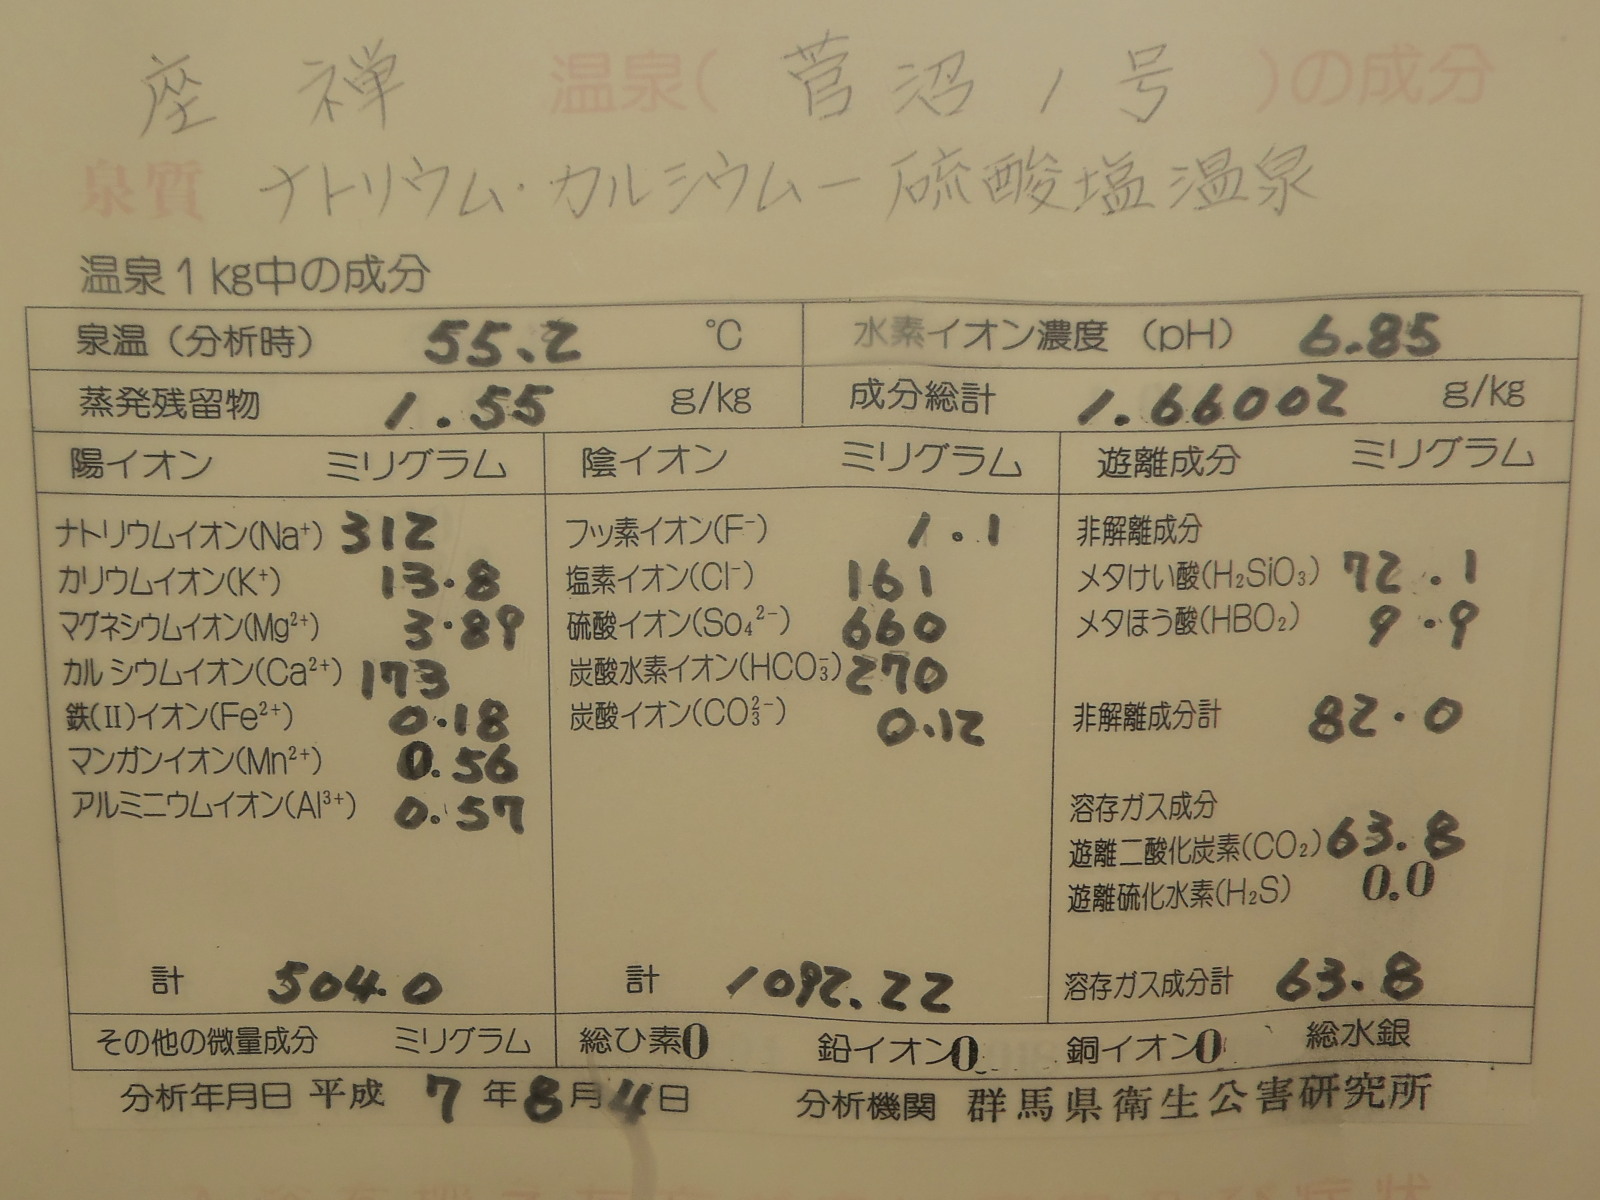 座禅 温泉(菅沼1号)の成分
泉質 ナトリウム・カルシウムー硫酸塩温泉
温泉1kg中の成分
泉温(分析時) 55.2 ℃ 水素イオン濃度(pH) 6.85
蒸発残留物 1.55 g/kg 成分総計 1.66002 g/kg
陽イオン ミリグラム 陰イオン ミリグラム 遊離成分 ミリグラム
ナトリウムイオン(Na⁺) 312 フッ素イオン(F⁻) 1.1 非解離成分
カリウムイオン(K⁺) 13.8 塩素イオン(Cl⁻) 161 メタけい酸(H₂SiO₃) 72.1
マグネシウムイオン(Mg²⁺) 3.89 硫酸イオン(So₄²⁻) 660 メタほう酸(HBO₂) 9.9
カルシウムイオン(Ca²⁺) 173 炭酸水素イオン(HCO₃⁻) 270
鉄(Ⅱ)イオン(Fe²⁺) 0.18 炭酸イオン(CO₃²⁻) 0.12 非解離成分計 82.0
マンガンイオン(Mn²⁺) 0.56
アルミニウムイオン(Al³⁺) 0.57 溶存ガス成分
遊離二酸化炭素(CO₂) 63.8
遊離硫化水素(H₂S) 0.0
計 504.0 計 1092.22 溶存ガス成分計 63.8
その他の微量成分 ミリグラム 総ひ素0 鉛イオン0 銅イオン0 総水銀
分析年月日 平成 7年8月4日 分析機関 群馬県衛生公害研究所